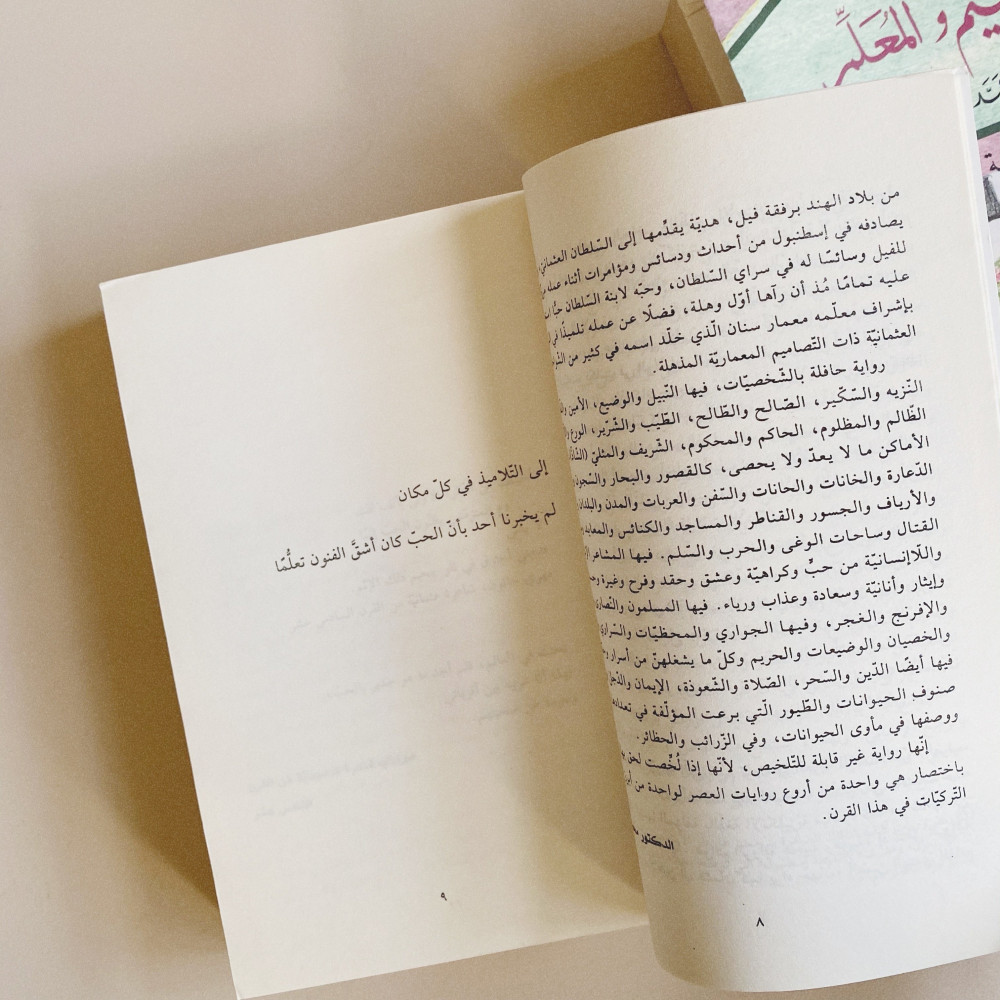 من بلاد الهند برفقة فيل، هديّة يقدِّمها إلى السّلطان العثمانيّ
يصادفه في إسطنبول من أحداث ودسائس ومؤامرات أثناء عمله
للفيل وسائسًا له في سراي السّلطان، وحبّه لابنة السّلطان حبًّا
عليه تمامًا مُذ أن رآها أوّل وهلة، فضلًا عن عمله تلميذًا في
بإشراف معلّمه معمار سنان الّذي خلّد اسمه في كثير من
العثمانيّة ذات التّصاميم المعماريّة المذهلة.
رواية حافلة بالشّخصيّات، فيها النّبيل والوضيع، الأمين
النّزيه والسّكّير، الصّالح والطّالح، الطّيّب والشّرّير، الورع
الظّالم والمظلوم، الحاكم والمحكوم، الشّريف والمثليّ
الأماكن ما لا يعدّ ولا يحصى، كالقصور والبحار والسّجون
الدّعارة والخانات والحانات والسّفن والعربات والمدن والبلدان
والأرياف والجسور والقناطر والمساجد والكنائس والمعابد
القتال وساحات الوغى والحرب والسّلم. فيها المشاعر
واللّاإنسانيّة من حبٍّ وكراهيّة وعشق وحقد وفرح وغيرة
وإيثار وأنانيّة وسعادة وعذاب ورياء. فيها المسلمون والنّصارى
والإفرنج والغجر، وفيها الجواري والمحظيّات والسّراري
والخصيان والوضيعات والحريم وكلّ ما يشغلهنّ من أسرار
فيها أيضًا الدّين والسّحر، الصّلاة والشّعوذة، الإيمان والدّجل
صنوف الحيوانات والطّيور الّتي برعت المؤلّفة في تعدادها
ووصفها في مأوى الحيوانات، وفي الزّرائب والحظائر.
إنّها رواية غير قابلة للتّلخيص، لأنّها إذا لُخّصت لحق
باختصار هي واحدة من أروع روايات العصر لواحدة من
التّركيّات في هذا القرن.
الدكتور
٨
إلى التّلاميذ في كلّ مكان
لم يخبرنا أحد بأنّ الحبّ كان أشقَّ الفنون تعلُّمًا
٩
والمُعَلِّم